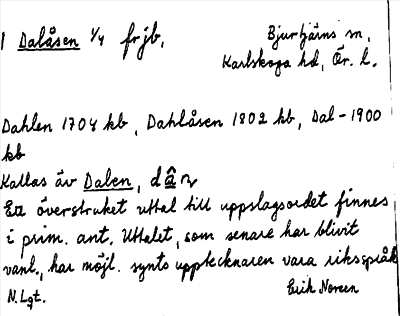 1 Dalåsen 1/4 frjb,
Bjurtjärns sn,
Karlskoga hd, Ör. l.
Dahlen 1704 kb, Dahlåsen 1802 kb, Dal- 1900
kb
Kallas äv Dalen, dân
Ett överstruket uttal till uppslagsordet finnes
i prim. ant. Uttalet, som senare har blivit
vanl., har möjl. synts upptecknaren vara riksspråk
N.Lgt.
Erik Noreen